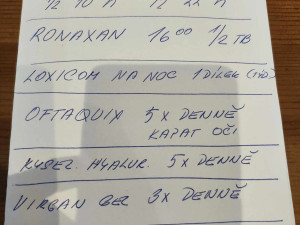 RONAXAN 16⁰⁰ 1/2 TB
LOXICOM NA NOC 1 DÍLEK
OFTAQUIX 5X DENNĚ
KAPAT OČI
KYSEL. HYALUR. 5X DENNĚ
VIRGAN GEL 3X DENNĚ